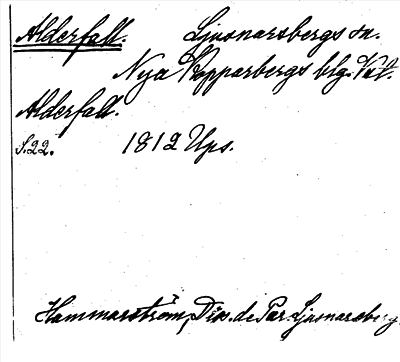 Alderfall. Ljusnarsbergs sn.
Nya Kopparbergs blg. Vstm.
Alderfall.
S.22. 1812 Ups.
Hammarström, Diss. de Par. Ljusnarsberg.